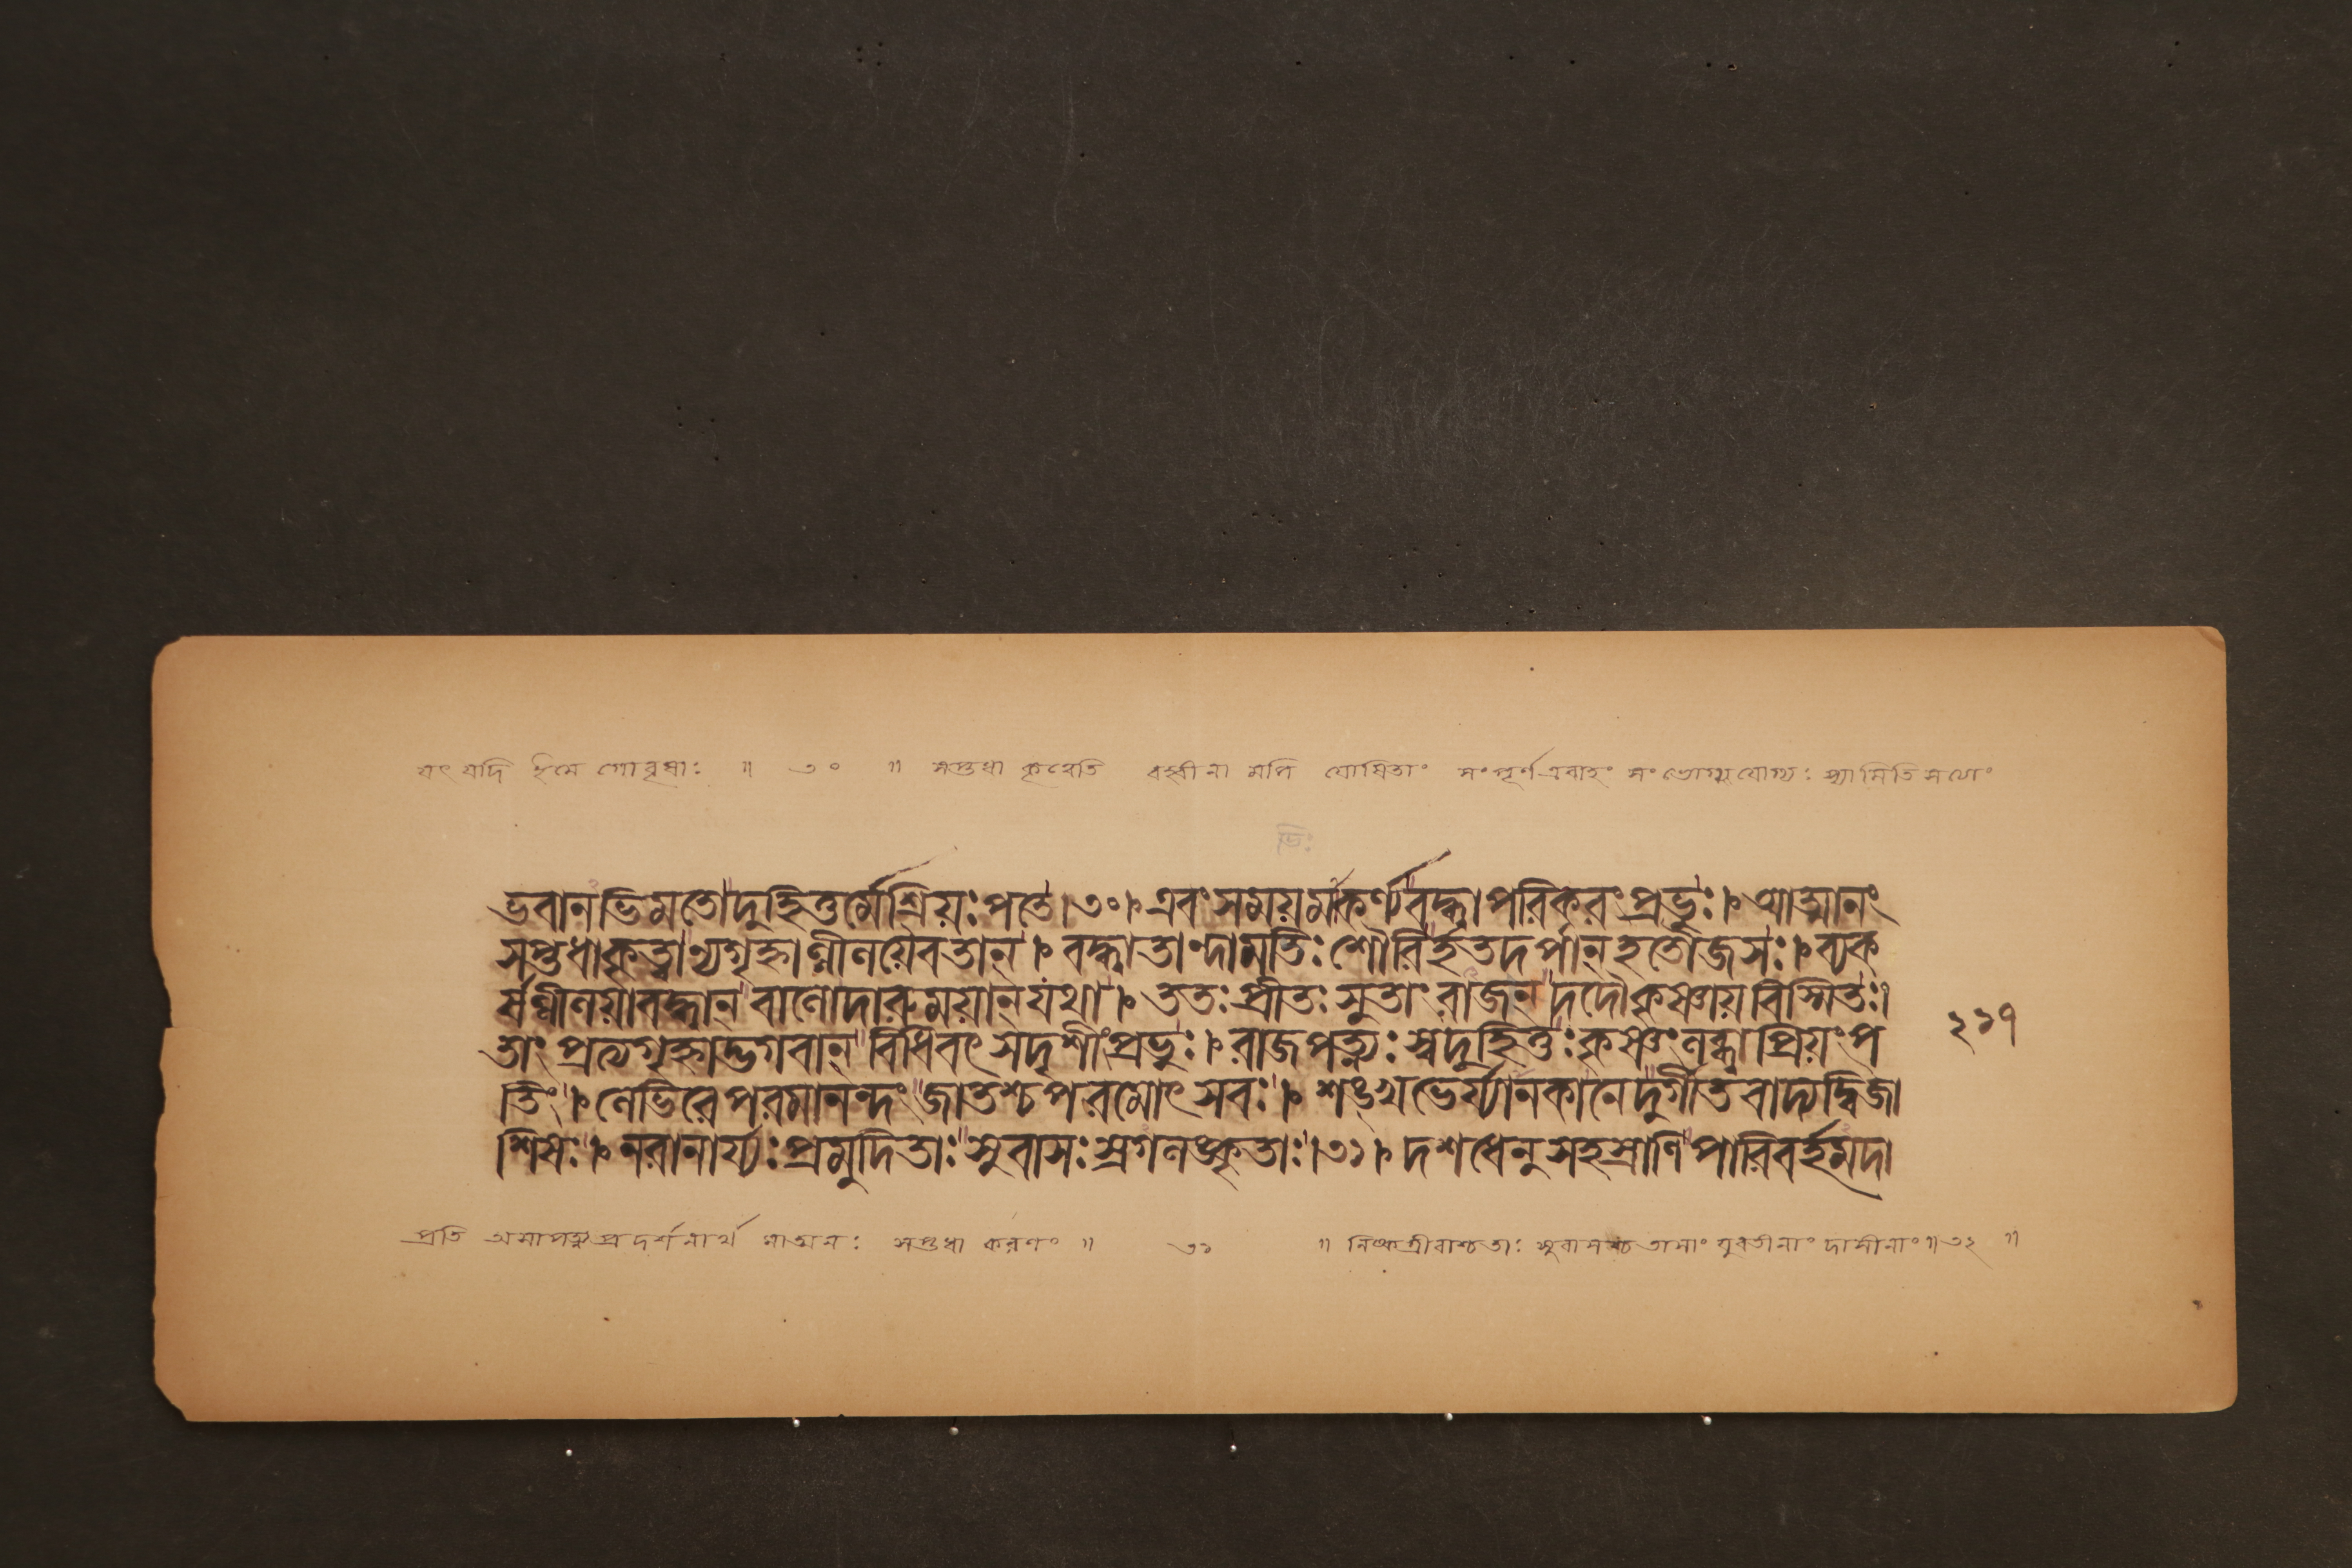 যৎ যদি ইমে গোবৃষাঃ ॥ ৩০ ॥ সপ্তধা কৃত্বেতি বহ্বীনা মপি যোষিতাং সংপূর্ণএবাহং সংভোগ্যযোগ্যঃ স্যামিতি সত্যাং
ভিঃ
ভবানভিমতোদুহিতুর্মেশ্রিয়ঃপতে।৩০। এবং সময়মাকর্ণ্যবদ্ধ্বাপরিকরংপ্রভুঃ। আত্মানং
সপ্তধাকৃত্বান্যগৃহ্নাল্লীলয়ৈবতান্। বদ্ধ্বাতান্দামভিঃশৌরির্হতদর্পান্হতৌজসঃ। ব্যক
র্ষল্লীলয়াবদ্ধান্ বালোদারুময়ান্যথা। ততঃপ্রীতঃসুতাংরাজন্ দদৌকৃষ্ণায়বিস্মিতঃ।
তাং প্রত্যগৃহ্নাদ্ভগবান্ বিধিবৎসদৃশীংপ্রভুঃ। রাজপত্ন্যঃস্বদুহিতুঃকৃষ্ণংলব্ধ্বাপ্রিয়ংপ
তিং। লেভিরেপরমানন্দং জাতশ্চপরমোৎসবঃ। শঙ্খভের্য্যানকানেদুর্গীতবাদ্যদ্বিজা
শিষঃ। নরানার্য্যঃপ্রমুদিতাঃ সুবাসঃস্রগলঙ্কৃতাঃ।৩১। দশধেনুসহস্রাণি পারিবর্হমদা
২১৭
প্রতি অসাপত্ন্যপ্রদর্শনার্থ মাত্মনঃ সপ্তধা করণং ॥ ৩১ ॥ নিষ্কগ্রীবাশ্চতাঃ সুবাসসশ্চ তাসাং যুবতীনাং দাসীনাং॥৩২ ॥